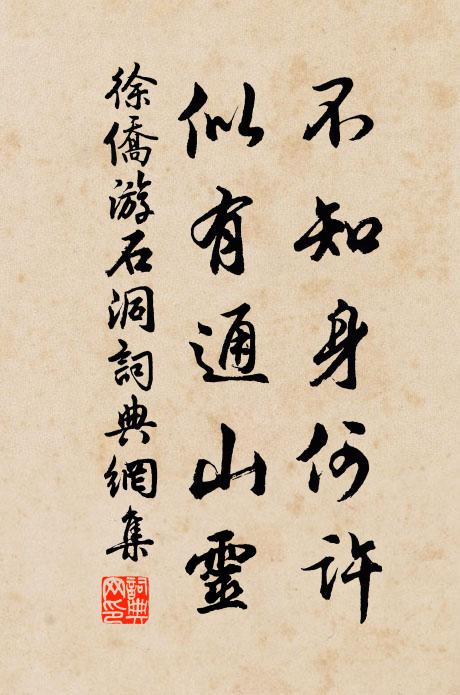 不知身何許
似有通山靈
徐僑游石洞詞典網集
詞典网印